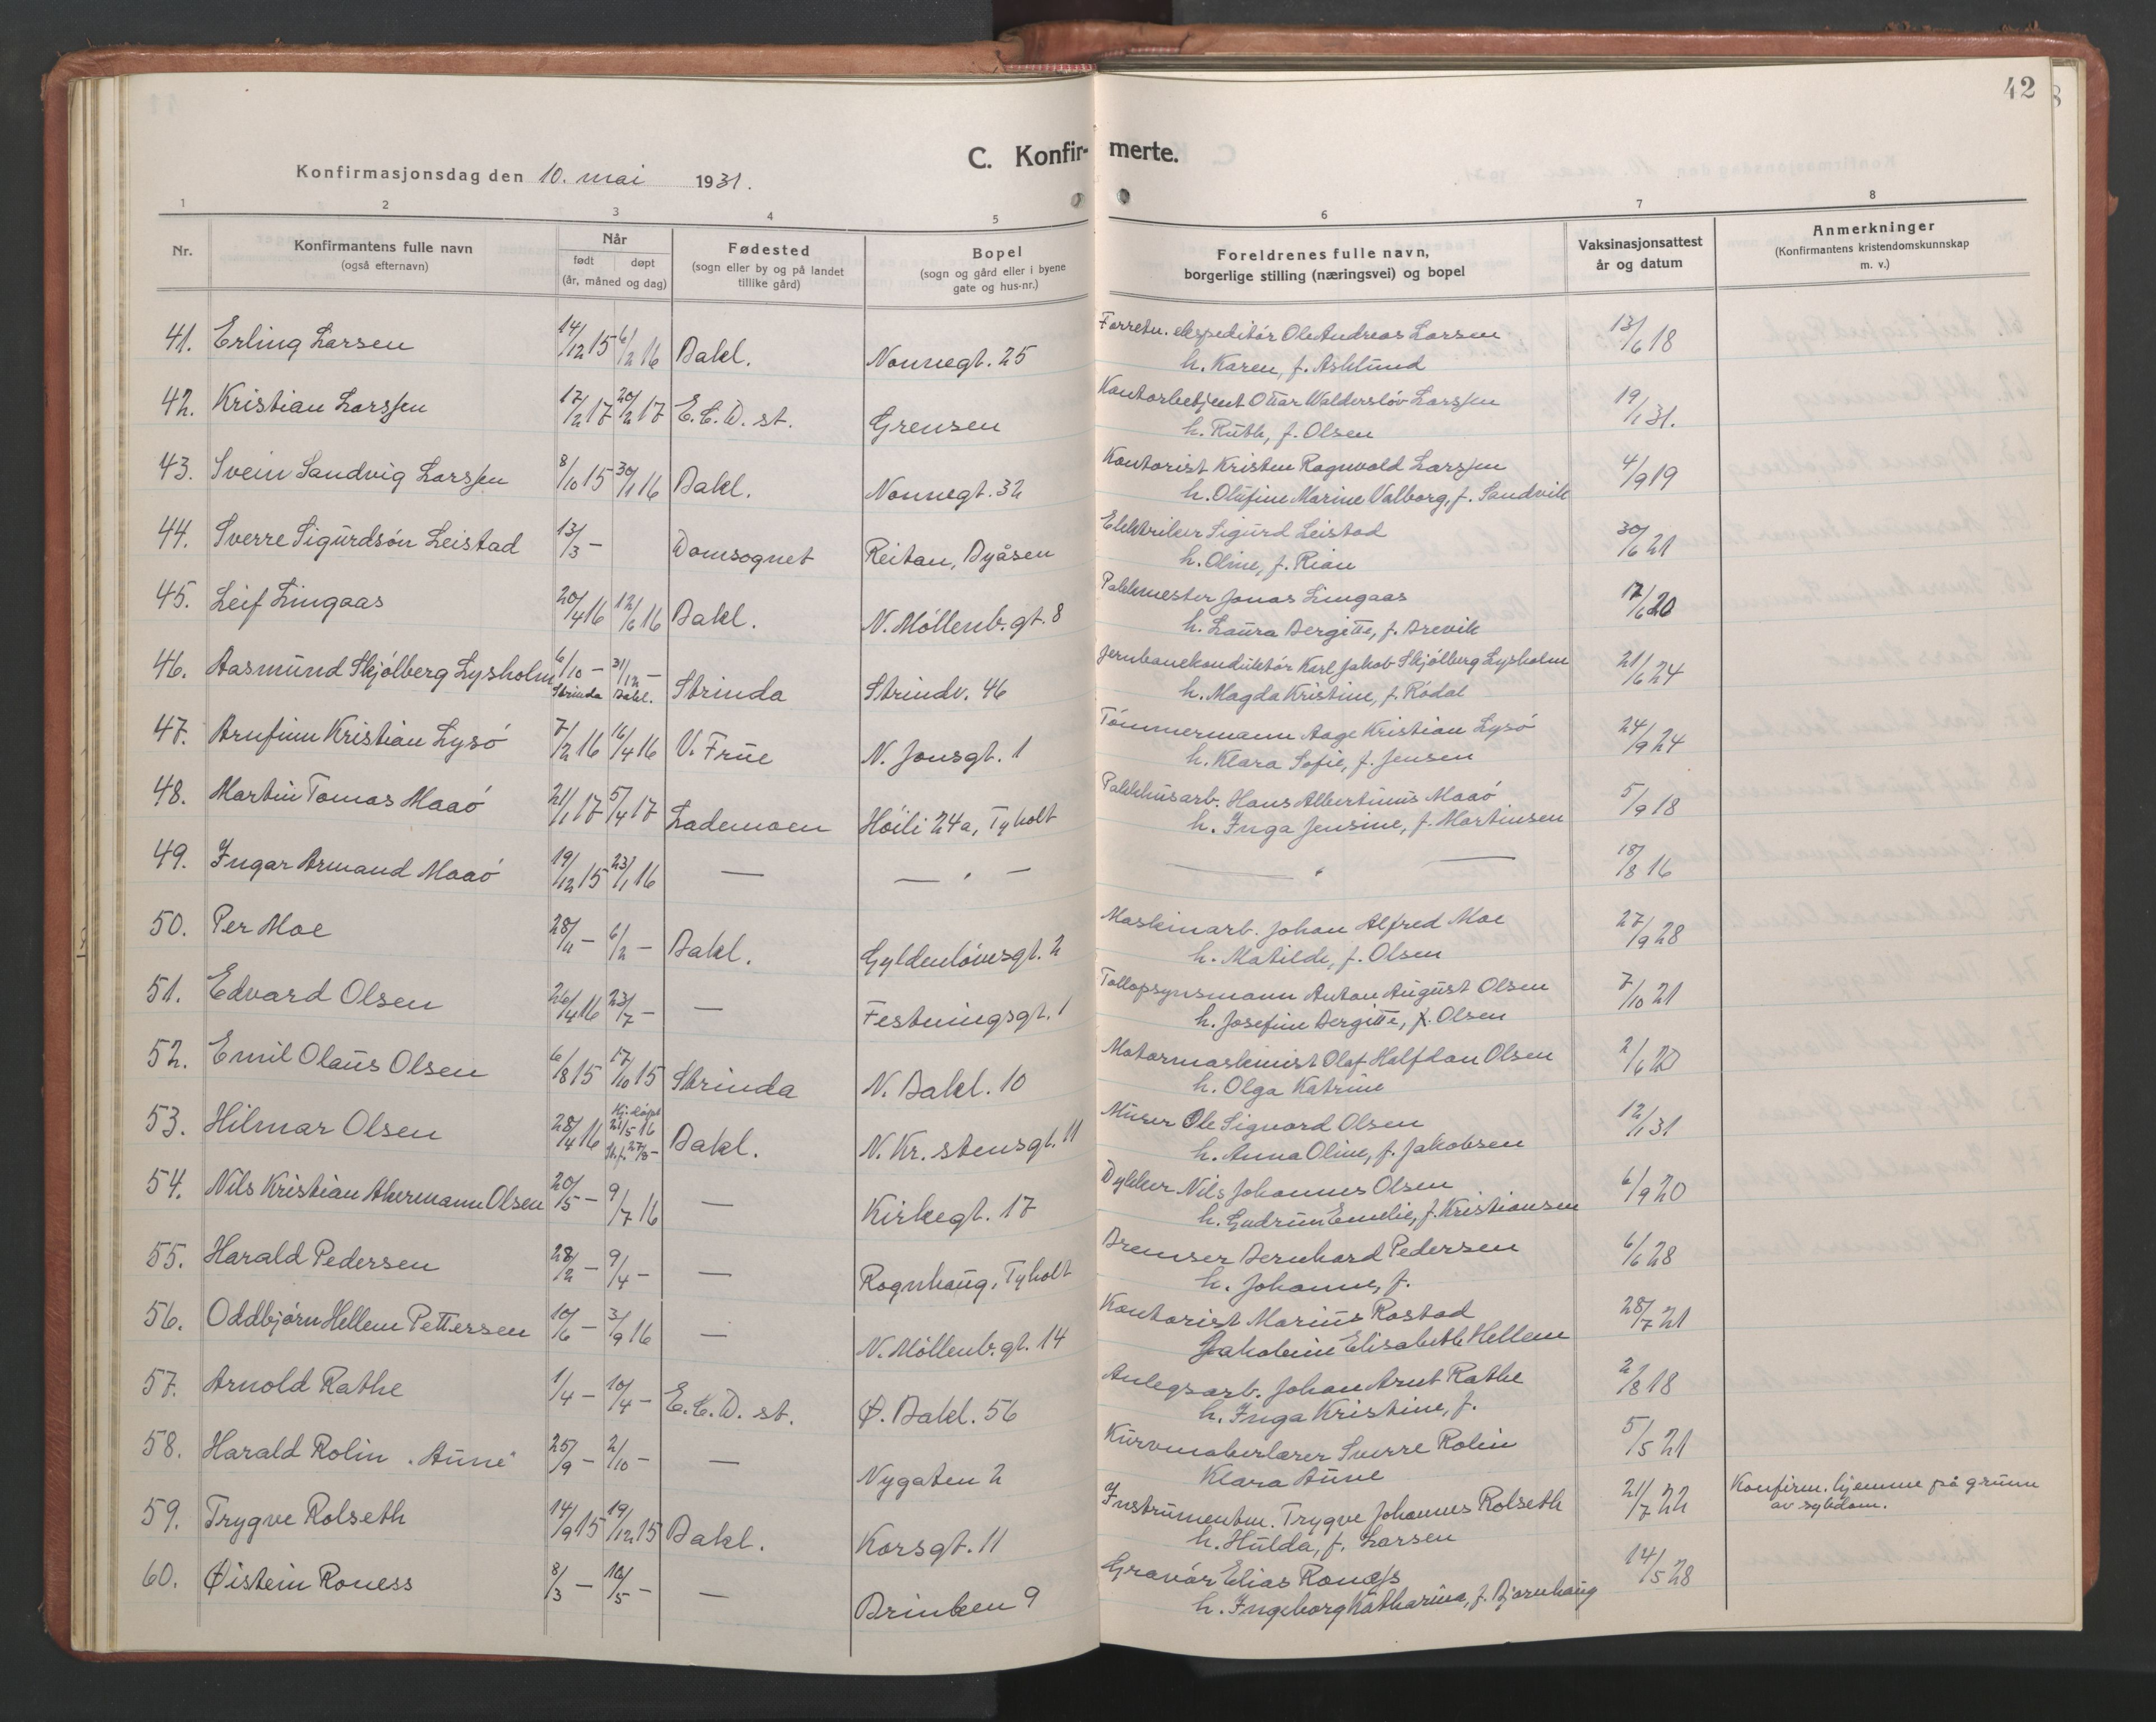 42
C. Konfirmerte.
Konfirmasjonsdag den 10. mai 1931.
1 2 3 4 5 6 7 8
Nr.
Konfirmantens fulle navn
(også efternavn)
Når
født døpt
(år, måned og dag)
Fødested
(sogn eller by og på landet
tillike gård)
Bopel
(sogn og gård eller i byene
gate og hus-nr.)
Foreldrenes fulle navn,
borgerlige stilling (næringsvei) og bopel
Vaksinasjonsattest
år og datum
Anmerkninger
(Konfirmantens kristendomskunnskap
m. v.)
41. Erling Larsen 14/12 15 6/2 16 Bakl. Nonnegt. 25 Forretn. ekspeditör Ole Andreas Larsen 13/6 18
h. Karen, f. Asklund
42. Kristian Larssen 17/2 17 20/2 17 E.C.D. st. Grensen Kontorbetjent Ottar Walderslöv Larssen 19/1 31.
h. Ruth, f. Olsen
43. Svein Sandvig Larssen 8/10 15 30/1 16 Bakl. Nonnegt. 32 Kontorist Kristen Ragnvald Larssen 4/9 19
h. Olufine Marine Valborg, f. Sandvik
44. Sverre Sigurdsön Leistad 13/3 – Domsognet Reitan, Byåsen Elektriker Sigurd Leistad 30/6 21
h. Oline, f. Rian
45. Leif Lingaas 20/4 16 12/6 16 Bakl. N. Möllenb. gt. 8 Pakkmester Jonas Lingaas 17/6 20
h. Laura Bergitte, f. Brevik
46. Aasmund Skjölberg Lysholm 6/10 – 31/12 – Strinda Strindv. 46 Jernbanekonduktör Karl Jakob Skjölberg Lysholm 21/6 24
Strinda Bakl. h. Magda Kristine, f. Rödal
47. Arnfinn Kristian Lysö 7/2 16 16/4 16 V. Frue N. Jonsgt. 1 Tömmermann Aage Kristian Lysö 24/9 24
h. Klara Sofie, f. Jensen
48. Martin Tomas Maaö 21/1 17 5/4 17 Lademoen Höili 24a, Tyholt Pakkhusarb. Hans Albertinus Maaö 5/9 18
h. Inga Jensine, f. Martinsen
49. Ingar Armand Maaö 19/12 15 23/1 16 — — " — — " — 18/8 16
50. Per Moe 28/11 – 6/2 – Bakl. Gyldenlövesgt. 2 Maskinarb. Johan Alfred Moe 27/9 28
h. Matilde, f. Olsen
51. Edvard Olsen 26/4 16 23/7 – — Festningsgt. 1 Tollopsynsmann Anton August Olsen 7/10 21
h. Josefine Bergitte, f. Olsen
52. Emil Olaus Olsen 6/8 15 17/10 15 Strinda N. Bakl. 10 Motormaskinist Olaf Halfdan Olsen 2/6 20
h. Olga Katrine
53. Hilmar Olsen 28/4 16 Hj. döpt 21/5 16 Bakl. N. Kr. stensgt. 11 Murer Ole Sigvard Olsen 12/1 31
St. f. 27/8 – h. Anna Oline, f. Jakobsen
54. Nils Kristian Akermann Olsen 20/5 – 9/7 16 — Kirkegt. 17 Dykker Nils Johannes Olsen 6/9 20
h. Gudrun Emelie, f. Kristiansen
55. Harald Pedersen 28/2 – 9/4 – — Rognhaug, Tyholt Bremser Bernhard Pedersen 6/6 28
h. Johanne, f.
56. Oddbjörn Hellem Pettersen 10/6 – 3/9 16 — N. Möllenb. gt. 14 Kontorist Marius Rostad 28/7 21
Jakobine Elisabeth Hellem
57. Arnold Rathe 1/4 – 10/4 – E.C.D. st. Ø. Bakl. 56 Anlegsarb. Johan Arnt Rathe 2/8 18
h. Inga Kristine, f.
58. Harald Rolin "Aune" 25/9 – 2/10 – — Nygaten 2 Kurvmakerlærer Sverre Rolin 5/5 21
Klara Aune
59. Trygve Rolseth 14/9 15 19/12 15 Bakl. Korsgt. 11 Instrumentm. Trygve Johannes Rolseth 21/7 22 Konfirm. hjemme på grunn
h. Hulda, f. Larsen av sykdom.
60. Øistein Roness 8/3 – 16/5 – — Brinken 9 Gravör Elias Roness 14/5 28
h. Ingeborg Katharina, f. Bjørnhaug